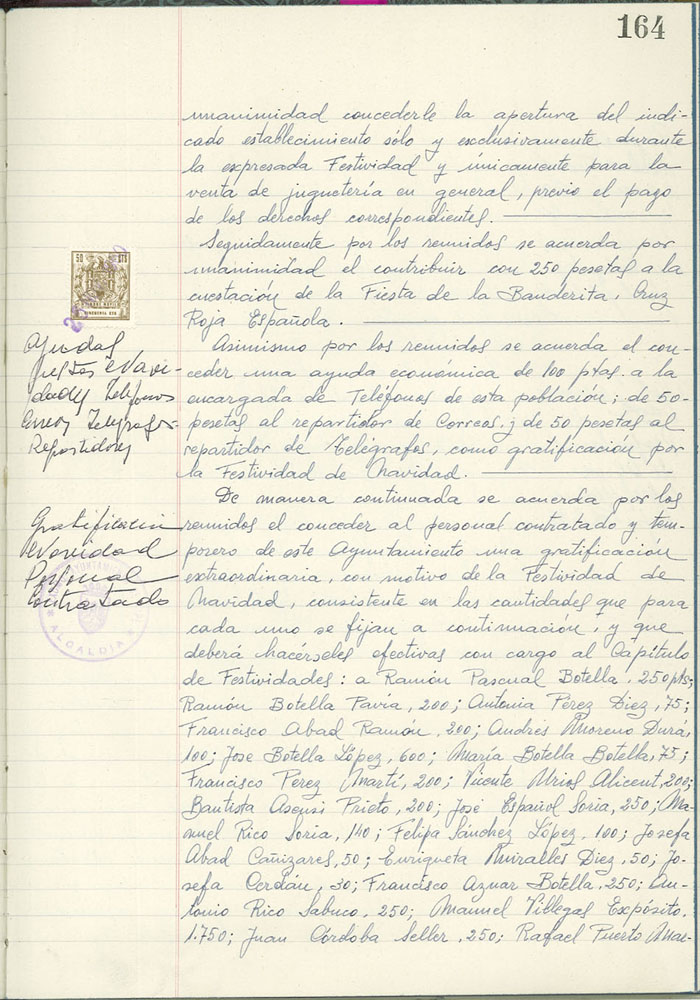 164
unanimidad concederle la apertura del indi-
cado establecimiento sólo y exclusivamente durante
la expresada Festividad y únicamente para la
venta de juguetería en general, previo el pago
de los derechos correspondientes.
Seguidamente por los reunidos se acuerda por
unanimidad el contribuir con 250 pesetas a la
cuestación de la Fiesta de la Banderita, Cruz
Roja Española.
50 PTS
Ayudas
fiestas Navi-
dades Teléfonos
Correos Telégrafos
Repartidores
Asimismo por los reunidos se acuerda el con-
ceder una ayuda económica de 100 ptas. a la
encargada de Teléfonos de esta población; de 50-
pesetas al repartidor de Correos; y de 50 pesetas al
repartidor de Telégrafos, como gratificación por
la Festividad de Navidad.
Gratificación
Navidad
Personal
Contratado
ALCALDIA
De manera continuada se acuerda por los
reunidos el conceder al personal contratado y tem-
porero de este Ayuntamiento una gratificación
extraordinaria, con motivo de la Festividad de
Navidad, consistente en las cantidades que para
cada uno se fijan a continuación, y que
deberá hacérseles efectivas con cargo al Capítulo
de Festividades: a Ramón Pascual Botella, 250 pts;
Ramón Botella Pavía, 200; Antonia Pérez Diez, 75;
Francisco Abad Ramón, 200; Andrés Moreno Durá,
100; Jose Botella López, 600; María Botella Botella, 75;
Francisco Pérez Martí, 200; Vicente Uriol Alicent, 200;
Bautista Asensi Prieto, 200; José Español Soria, 250; Ma-
nuel Rico Soria, 140; Felipa Sánchez López, 100; Josefa
Abad Cañizares, 50; Enriqueta Miralles Diez, 50; Jo-
sefa Cerdán, 30; Francisco Aznar Botella, 250; An-
tonio Rico Sabuco, 250; Manuel Villegas Expósito,
1.750; Juan Córdoba Seller, 250; Rafael Puerto